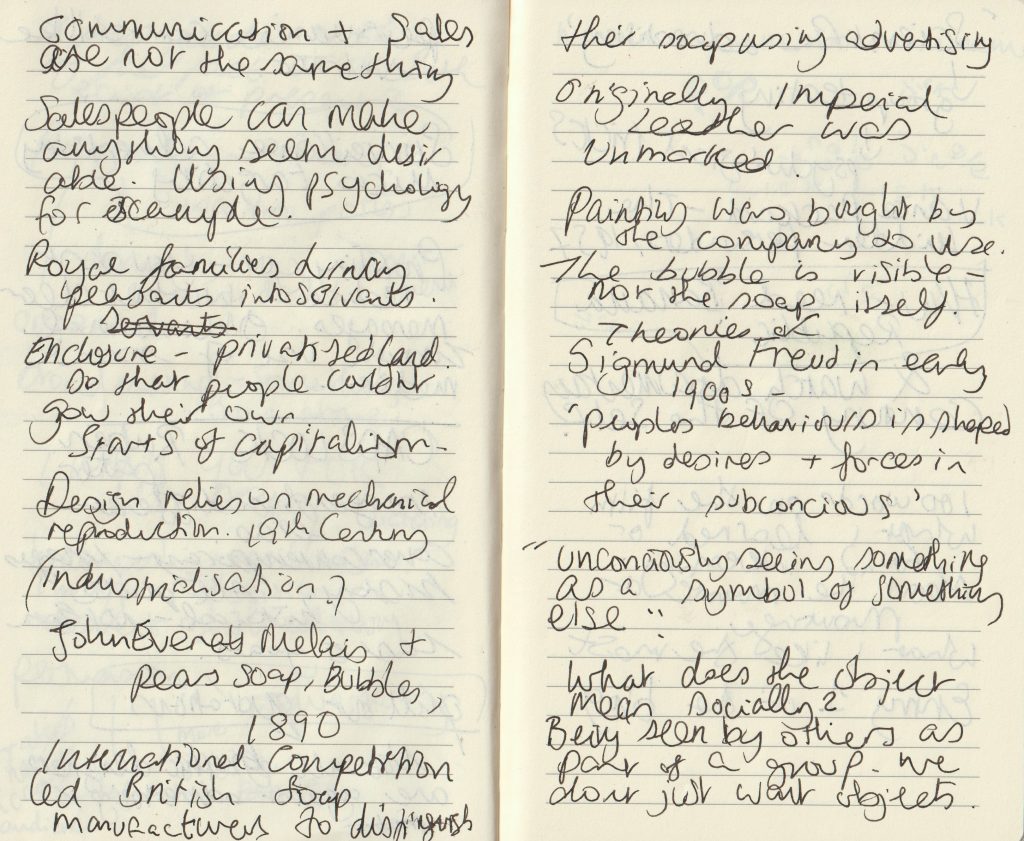 Communication + Sales
are not the same thing
Salespeople can make
anything seem desir
able. Using psychology
for example.
Royal families driving
peasants into servants.
Servants
Enclosure - privatised land.
So that people couldnt
grow their own
Starts of capitalism -
Design relies on mechanical
reproduction. 19th Century
(Industrialisation?)
John Everett Melais +
pears soap, Bubbles,
1890
International Competition
led British Soap
manufacturers to distinguish
their soap using advertising
Originally, Imperial
Leather was
Unmarked
Painting was bought by
the company to use.
The bubble is visible -
not the soap itself.
Theories of
Sigmund Freud in early
1900s -
'peoples behaviours is shaped
by desires + forces in
their subconcious'
"unconciously seeing something
as a symbol of something
else"
What does the object
mean socially?
Being seen by others as
part of a group. We
dont just want objects.